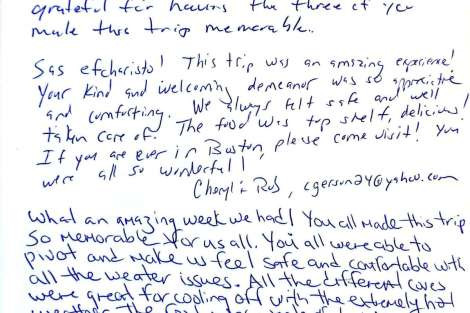 grateful for having the three of you
make this trip memorable.
Sas efcharisto! This trip was an amazing experience!
Your kind and welcoming demeanor was so appreciative
and comforting. We always felt safe and well
taken care of. The food was top shelf, delicious!
If you are ever in Boston, please come visit! You
were all so wonderful!
Cheryl & Rob, cgerson24@yahoo.com
What an amazing week we had! You all made this trip
so memorable for us all. You all were able to
pivot and make us feel safe and comfortable with
all the weater issues. All the different coves
were great for cooling off with the extremely hot